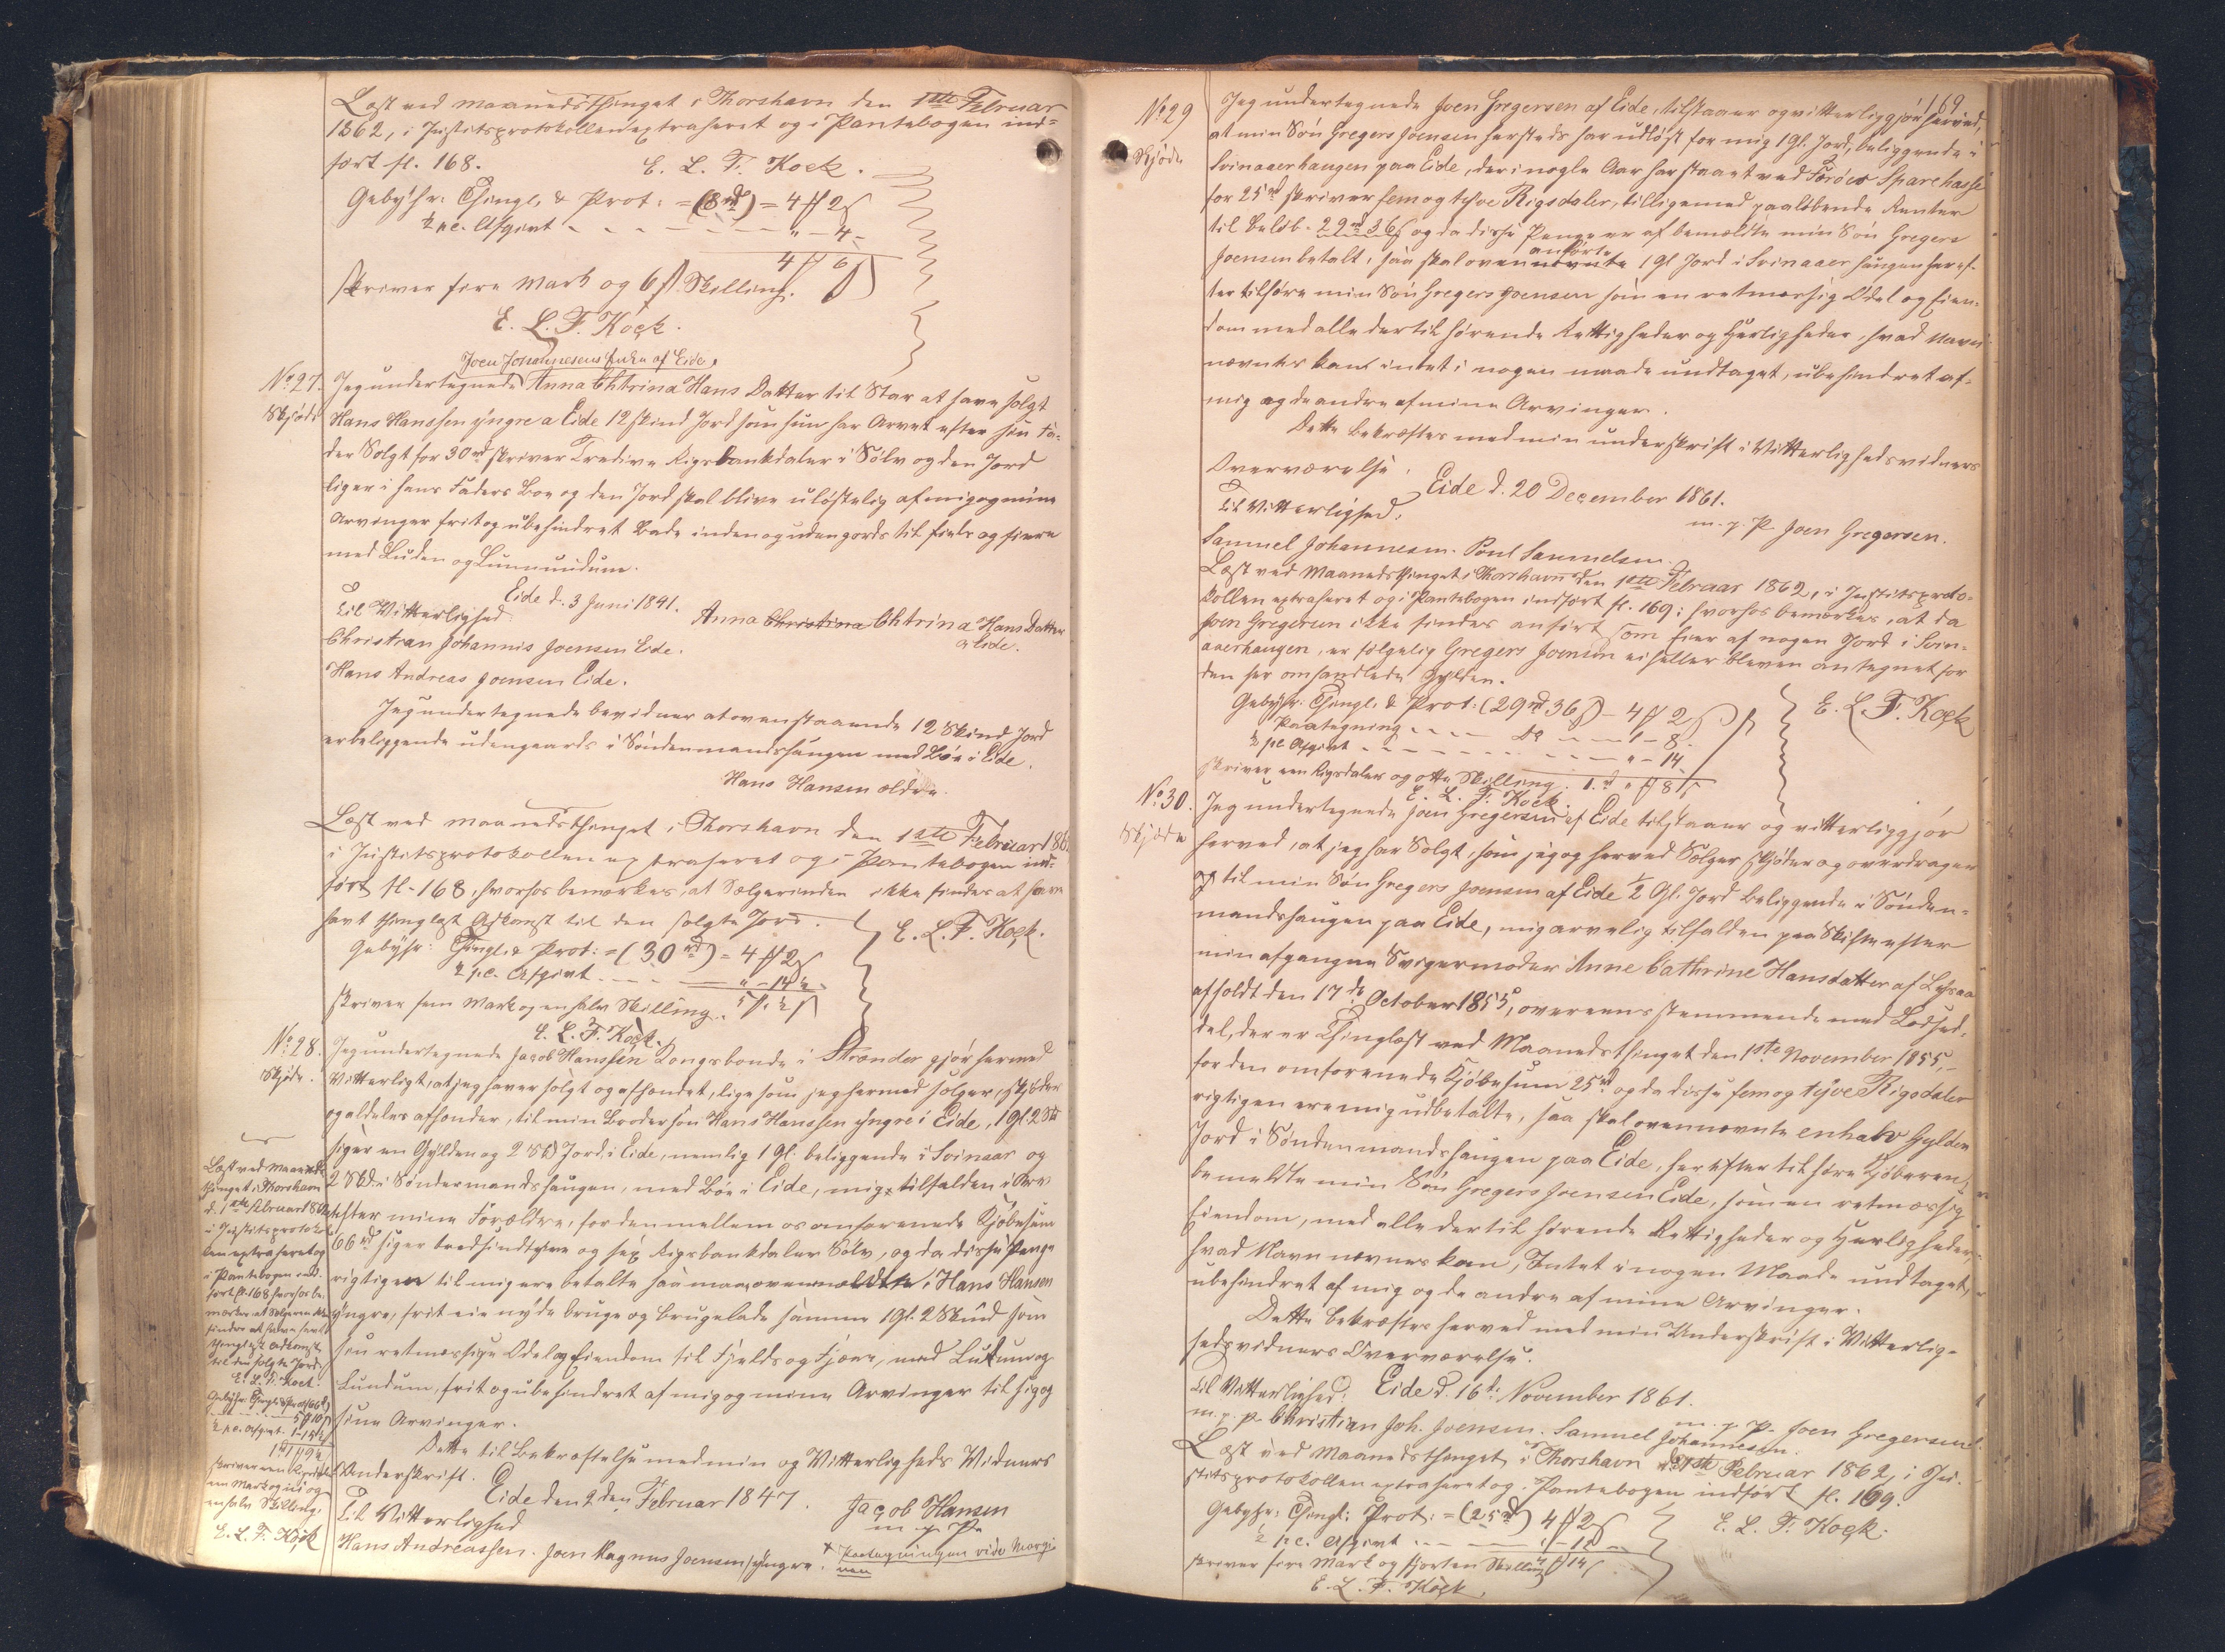 Læst ved maanedsthinget i Thorshavn den 1ste Februar
1862, i Justitsprotokollen extraheret og i Pantebogen ind-
ført fl. 168.
E. L. F. Kock.
Gebyhr: Thingl. & Prot: = (8 rd) = 4 # 2 ß
½ pc. Afgivt - - - - " - 4 -
4 # 6 ß
skriver fire Mark og 6 ß Skilling.
E. L. F. Kock.
Joen Johannesens Enke af Eide,
No 27. Jeg undertegnede Anna Chtrina Hans Datter til Star at have solgt
Skjøde Hans Hanssen yngre a Eide 12 skind Jord som hun har Arvet efter sin Fa-
der Solgt for 30 rd skriver Tredive Rigsbankdaler i Sølv og den Jord
liger i hans Faders Boe og den Jord skal blive uløstelig af mig og mine
Arvinger frit og ubehindret Bade inden og uden gords til fiels og fiere
med Luden og Lunnundum.
Eide d. 3 Juni 1841.
Til Vitterlighed
Anna Christina Chtrina Hans Datter
a Eide.
Christian Johannis Joensen Eide.
Hans Andreas Joensen Eide.
Jeg undertegnede bevidner at ovenstaaende 12 Skind Jord
er beliggende udengaards i Søndenmandshaugen med Bøe i Eide.
Hans Hansen ældre.
Læst ved maanedsthinget i Thorshavn den 1ste Februar 186
i Justitsprotokollen extraheret og i Pantebogen ind-
ført fl. 168, hvorhos bemærkes, at Sælgerinden ikke findes at have
havt thinglæst Adkomst til den solgte Jord.
E. L. F. Kock.
Gebyhr: Thingl. & Prot: = (30 rd) = 4 # 2 ß
½ pc. Afgivt - - - " - 14½
skriver fem Mark og en halv Skilling. 5 # ½ ß
E. L. F. Kock.
No 28. Jeg undertegnede Jacob Hanssen Kongsbonde i Strander gjør hermed
Skjøde. Vitterligt, at jeg haver solgt og afhendet, ligesom jeg hermed solger, skjøder
og aldeles afhender, til min Broder søn Hans Hanssen yngre i Eide, 1 gl. 2 Sk
siger en Gylden og 2 Skd Jord i Eide, nemlig 1 gl. beliggende i Svinaar og
2 Skd. i Søndermandshaugen, med Bøe i Eide, mig tilfalden i Arv
efter mine Forældre, for den mellem os omforenede Kjøbesum
66 rd siger tredsindstyve og sex Rigsbankdaler Sølv, og da disse Penge
rigtigen til mig ere betalte saa maa ovenmældte Hans Hansen
yngre, frit eie nyde bruge og brugelade samme 1 gl. 2 Skind som
sin retmæssige Odel og Eiendom til Fjelds og Fjære, med Lutum og
Lundum, frit og ubehindret af mig og mine Arvinger til sig og
sine Arvinger.
Dette til Bekræftelse med min og Vitterligheds Widners
Underskrift.
Eide den 2den Februar 1847.
Til Vitterlighed
Jacob Hansen
m. p. P.
Hans Andreassen. Joen Magnus Joensen yngre.
× Paategningen vide Margi-
nen
Læst ved Maaneds
thinget i Thorshavn
d. 1ste Februar 1862
i Justitsprotokol
len extraheret og
i Pantebogen ind-
ført fl. 168 hvorhos be-
mærkes, at Sælgeren ikke
findes at have havt
thinglæst Adkomst
til den solgte Jord.
E. L. F. Kock.
Gebyhr: Thingl. & Prot (66 rd)
5 # 10 ß
½ pc. Afgivt. 1 - 15½
1 rd 1 # 9½
skriver een Rigsdaler
een Mark og ni og
en halv Skilling.
E. L. F. Kock
169.
No 29 Jeg undertegnede Joen Gregersen af Eide, tilstaaer og vitterliggjør herved,
Skjøde at min Søn Gregers Joensen hersteds har udløst for mig 1 gl. Jord, beliggende i
Svinaaerhaugen paa Eide, der i nogle Aar har staaet ved Færøes Sparekasse
for 25 rd skriver fem og tyve Rigsdaler, tilligemed paaløbende Renter
til Beløb 29 rd 36 ß og da disse Penge er af bemældte min Søn Gregers
Joensen betalt, saa skal ovennævnte anførte 1 gl Jord i Svinaaerhaugen heref-
ter tilhøre min Søn Gregers Joensen som en retmæssig Odel og Eien-
dom med alle dertil hørende Rettigheder og Herligheder, hvad Navn
nævnes kan intet i nogen maade undtaget, ubehindret af
mig og de andre af mine Arvinger.
Dette bekræftes med min underskrift i Vitterlighedsvidners
Overværelse.
Eide d. 20 December 1861.
Til Vitterlighed.
m. p. P. Joen Gregersen.
Samuel Johannesen. Poul Samuelsen.
Læst ved Maanedsthinget i Thorshavn den 1ste Februar 1862, i Justitsproto-
kollen extraheret og i Pantebogen indført fl. 169; hvorhos bemærkes, at da
Joen Gregersen ikke findes anført som Eier af nogen Jord i Svin-
aaerhaugen, er følgelig Gregers Joensen ei heller bleven antegnet for
den her omhandlede Gylden.
Gebyhr: Thingl. & Prot: (29 rd 36 ß) - 4 # 2 ß
E. L. F. Kock
Paategning - - - - Do - - 1 - 8 -
½ pc Afgivt - - - - - - " - 14
skriver een Rigsdaler og otte Skilling. 1 rd " # 8 ß
E. L. F. Kock.
No 30. Jeg undertegnede Joen Gregersen af Eide tilstaaer og vitterliggjør
Skjøde herved, at jeg har Solgt, som jeg og herved Sælger skjøder og overdrager
til min Søn Gregers Joensen af Eide ½ Gl. Jord beliggende i Sønden-
mandshaugen paa Eide, mig arvelig tilfalden paa Skifte efter
min afgangne Svigermoder Anne Cathrine Hansdatter af
afholdt den 17de October 1855, overeensstemmende med Lodsed-
del, der er Thinglæst ved Maanedsthinget den 1ste November 1855,
for den omforenede Kjøbesum 25 rd og da disse fem og tyve Rigsdaler
rigtigen ere mig udbetalte, saa skal ovennævnte en halv Gylden
Jord i Søndenmandshaugen paa Eide, herefter tilhøre Kjøberen,
bemeldte min Søn Gregers Joensen Eide, som en retmæssig
Eiendom, med alle dertil hørende Rettigheder og Herligheder,
hvad Navn nævnes kan, Intet i nogen Maade undtaget,
ubehindret af mig og de andre af mine Arvinger.
Dette bekræftes herved med min Underskrift i Vitterlig-
hedsvidners Overværelse.
Til Vitterlighed: Eide d. 16de November 1861.
m. p. P. Joen Gregersen
m. p. P. Christian Joh. Joensen. Samuel Johannesen.
Læst ved Maanedsthinget i Thorshavn d. 1ste Februar 1862, i Ju-
stitsprotokollen extraheret og i Pantebogen indført fl. 169.
Gebyhr: Thingl: Prot: = (25 rd) 4 # 2 ß
E. L. F. Kock.
½ pc. Afgivt - - - " - 12 -
skriver fire Mark og fjorten Skilling 4 # 14 ß
E. L. F. Kock.